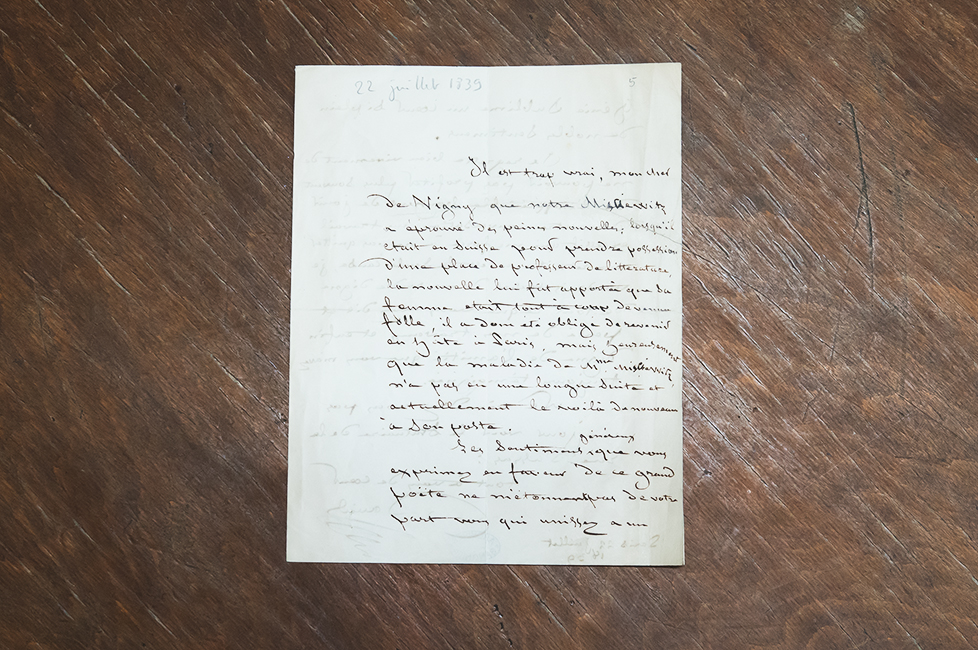 22 juillet 1839
5
Il est trop vrai, mon cher
De Vigny que notre Miskiewitz
a éprouvé des peines nouvelles, lorsqu'il
etait en Suisse pour prendre possession
d'une place de professeur de litterature,
la nouvelle lui fut apportée que sa
femme etait tout à coup devenue
folle, il a donc été obligé de revenir
en hâte à Paris mais heureusement
que la maladie de Mme Miskiewitz
n'a pas eu une longue suite et
actuellement le voilà de nouveau
à son poste.
généreux
Les sentiments que vous
exprimez en faveur de ce grand
poëte ne m'étonnent pas de votre
part vous qui unissez a un